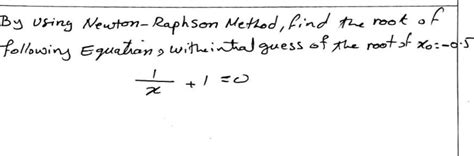 By using Newton-Raphson Method, find the root of
following Equations, with inital guess of the root of x₀=-0.5
1/x + 1 = 0